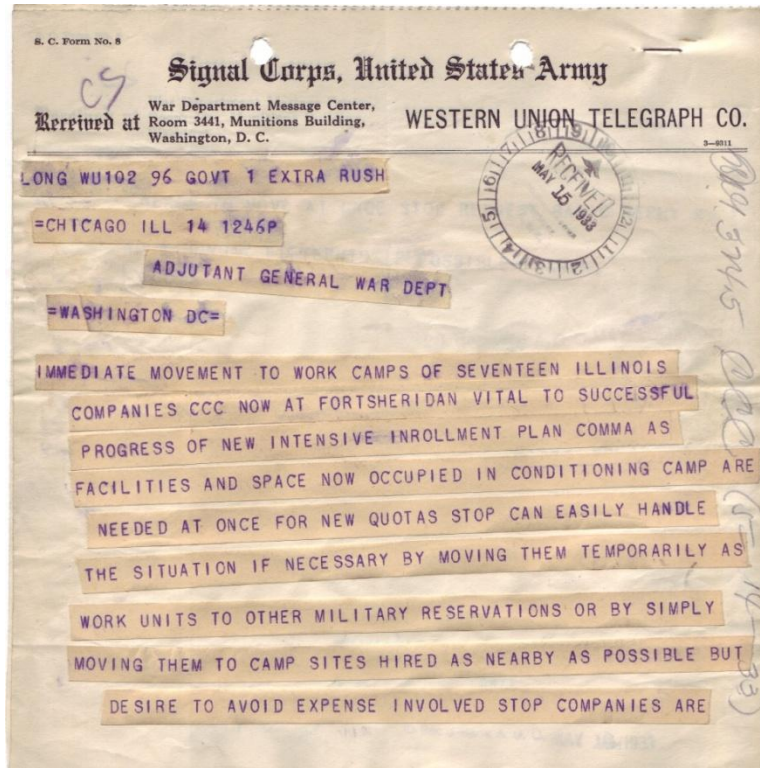 S. C. Form No. 8
Signal Corps, United States Army
Received at War Department Message Center, Room 3441, Munitions Building, Washington, D. C.
WESTERN UNION TELEGRAPH CO.
3—9311
RECEIVED
MAY 15 1933
LONG WU102 96 GOVT 1 EXTRA RUSH
=CHICAGO ILL 14 1246P
ADJUTANT GENERAL WAR DEPT
=WASHINGTON DC=
IMMEDIATE MOVEMENT TO WORK CAMPS OF SEVENTEEN ILLINOIS
COMPANIES CCC NOW AT FORTSHERIDAN VITAL TO SUCCESSFUL
PROGRESS OF NEW INTENSIVE INROLLMENT PLAN COMMA AS
FACILITIES AND SPACE NOW OCCUPIED IN CONDITIONING CAMP ARE
NEEDED AT ONCE FOR NEW QUOTAS STOP CAN EASILY HANDLE
THE SITUATION IF NECESSARY BY MOVING THEM TEMPORARILY AS
WORK UNITS TO OTHER MILITARY RESERVATIONS OR BY SIMPLY
MOVING THEM TO CAMP SITES HIRED AS NEARBY AS POSSIBLE BUT
DESIRE TO AVOID EXPENSE INVOLVED STOP COMPANIES ARE